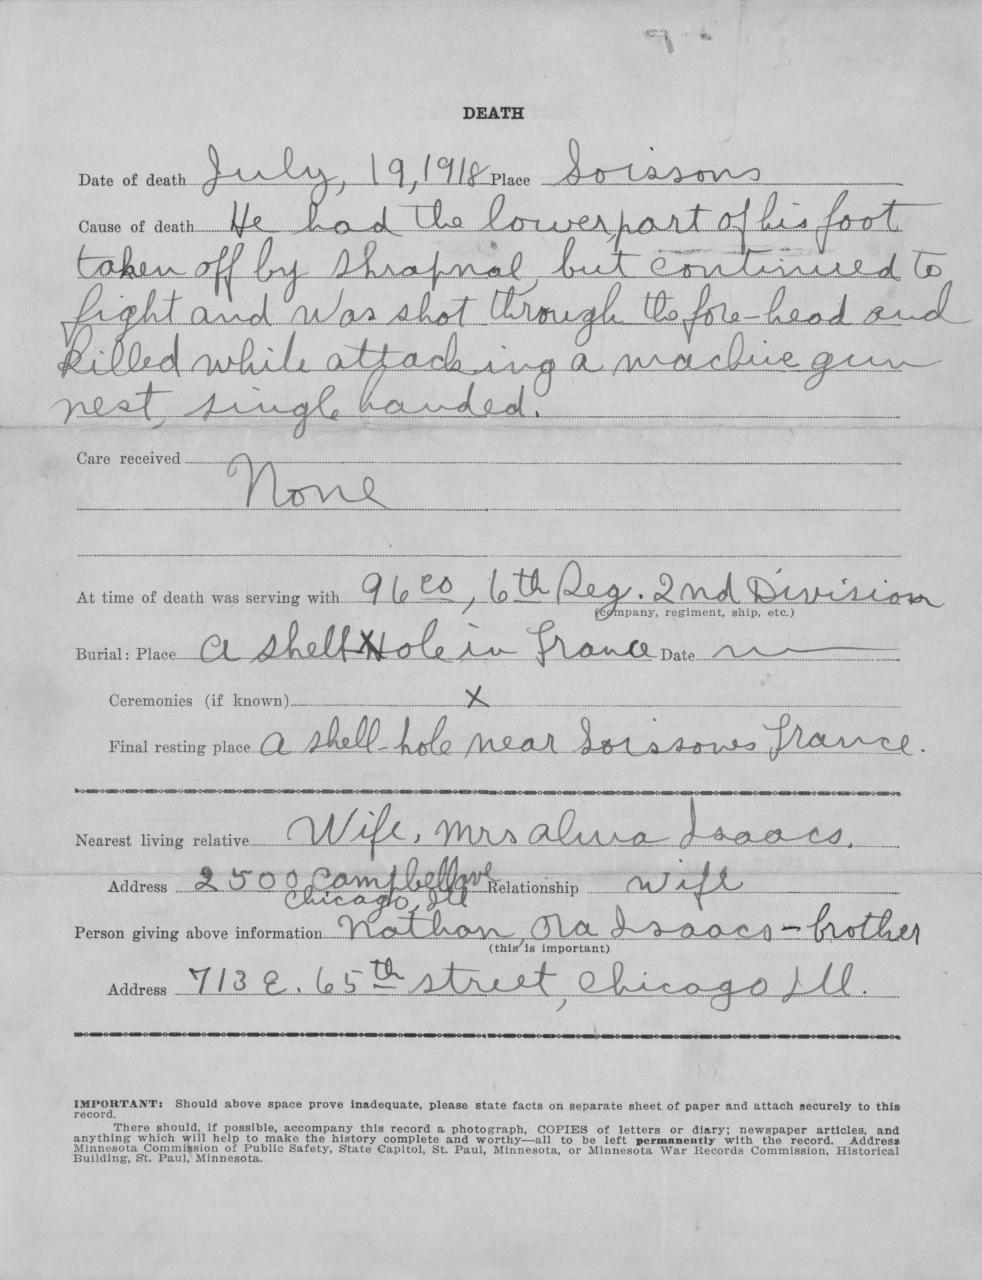 DEATH
Date of death July, 19, 1918 Place Soissons
Cause of death He had the lower part of his foot
taken off by Shrapnal, but continued to
fight and was shot through the fore-head and
killed while attacking a machine gun
nest, single handed.
Care received
None
At time of death was serving with 96 co, 6th Reg. 2nd Division
(company, regiment, ship, etc.)
Burial: Place A Shell Hole in France Date
Ceremonies (if known) X
Final resting place A shell-hole near Soissons France.
Nearest living relative Wife, Mrs Alma Isaacs.
Address 2500 Campbell ave Relationship Wife
Chicago, Ill
Person giving above information Nathan, Ora Isaacs - brother
(this is important)
Address 713 E. 65th street, Chicago Ill.
IMPORTANT: Should above space prove inadequate, please state facts on separate sheet of paper and attach securely to this
record.
There should, if possible, accompany this record a photograph, COPIES of letters or diary; newspaper articles, and
anything which will help to make the history complete and worthy—all to be left permanently with the record. Address
Minnesota Commission of Public Safety, State Capitol, St. Paul, Minnesota, or Minnesota War Records Commission, Historical
Building, St. Paul, Minnesota.